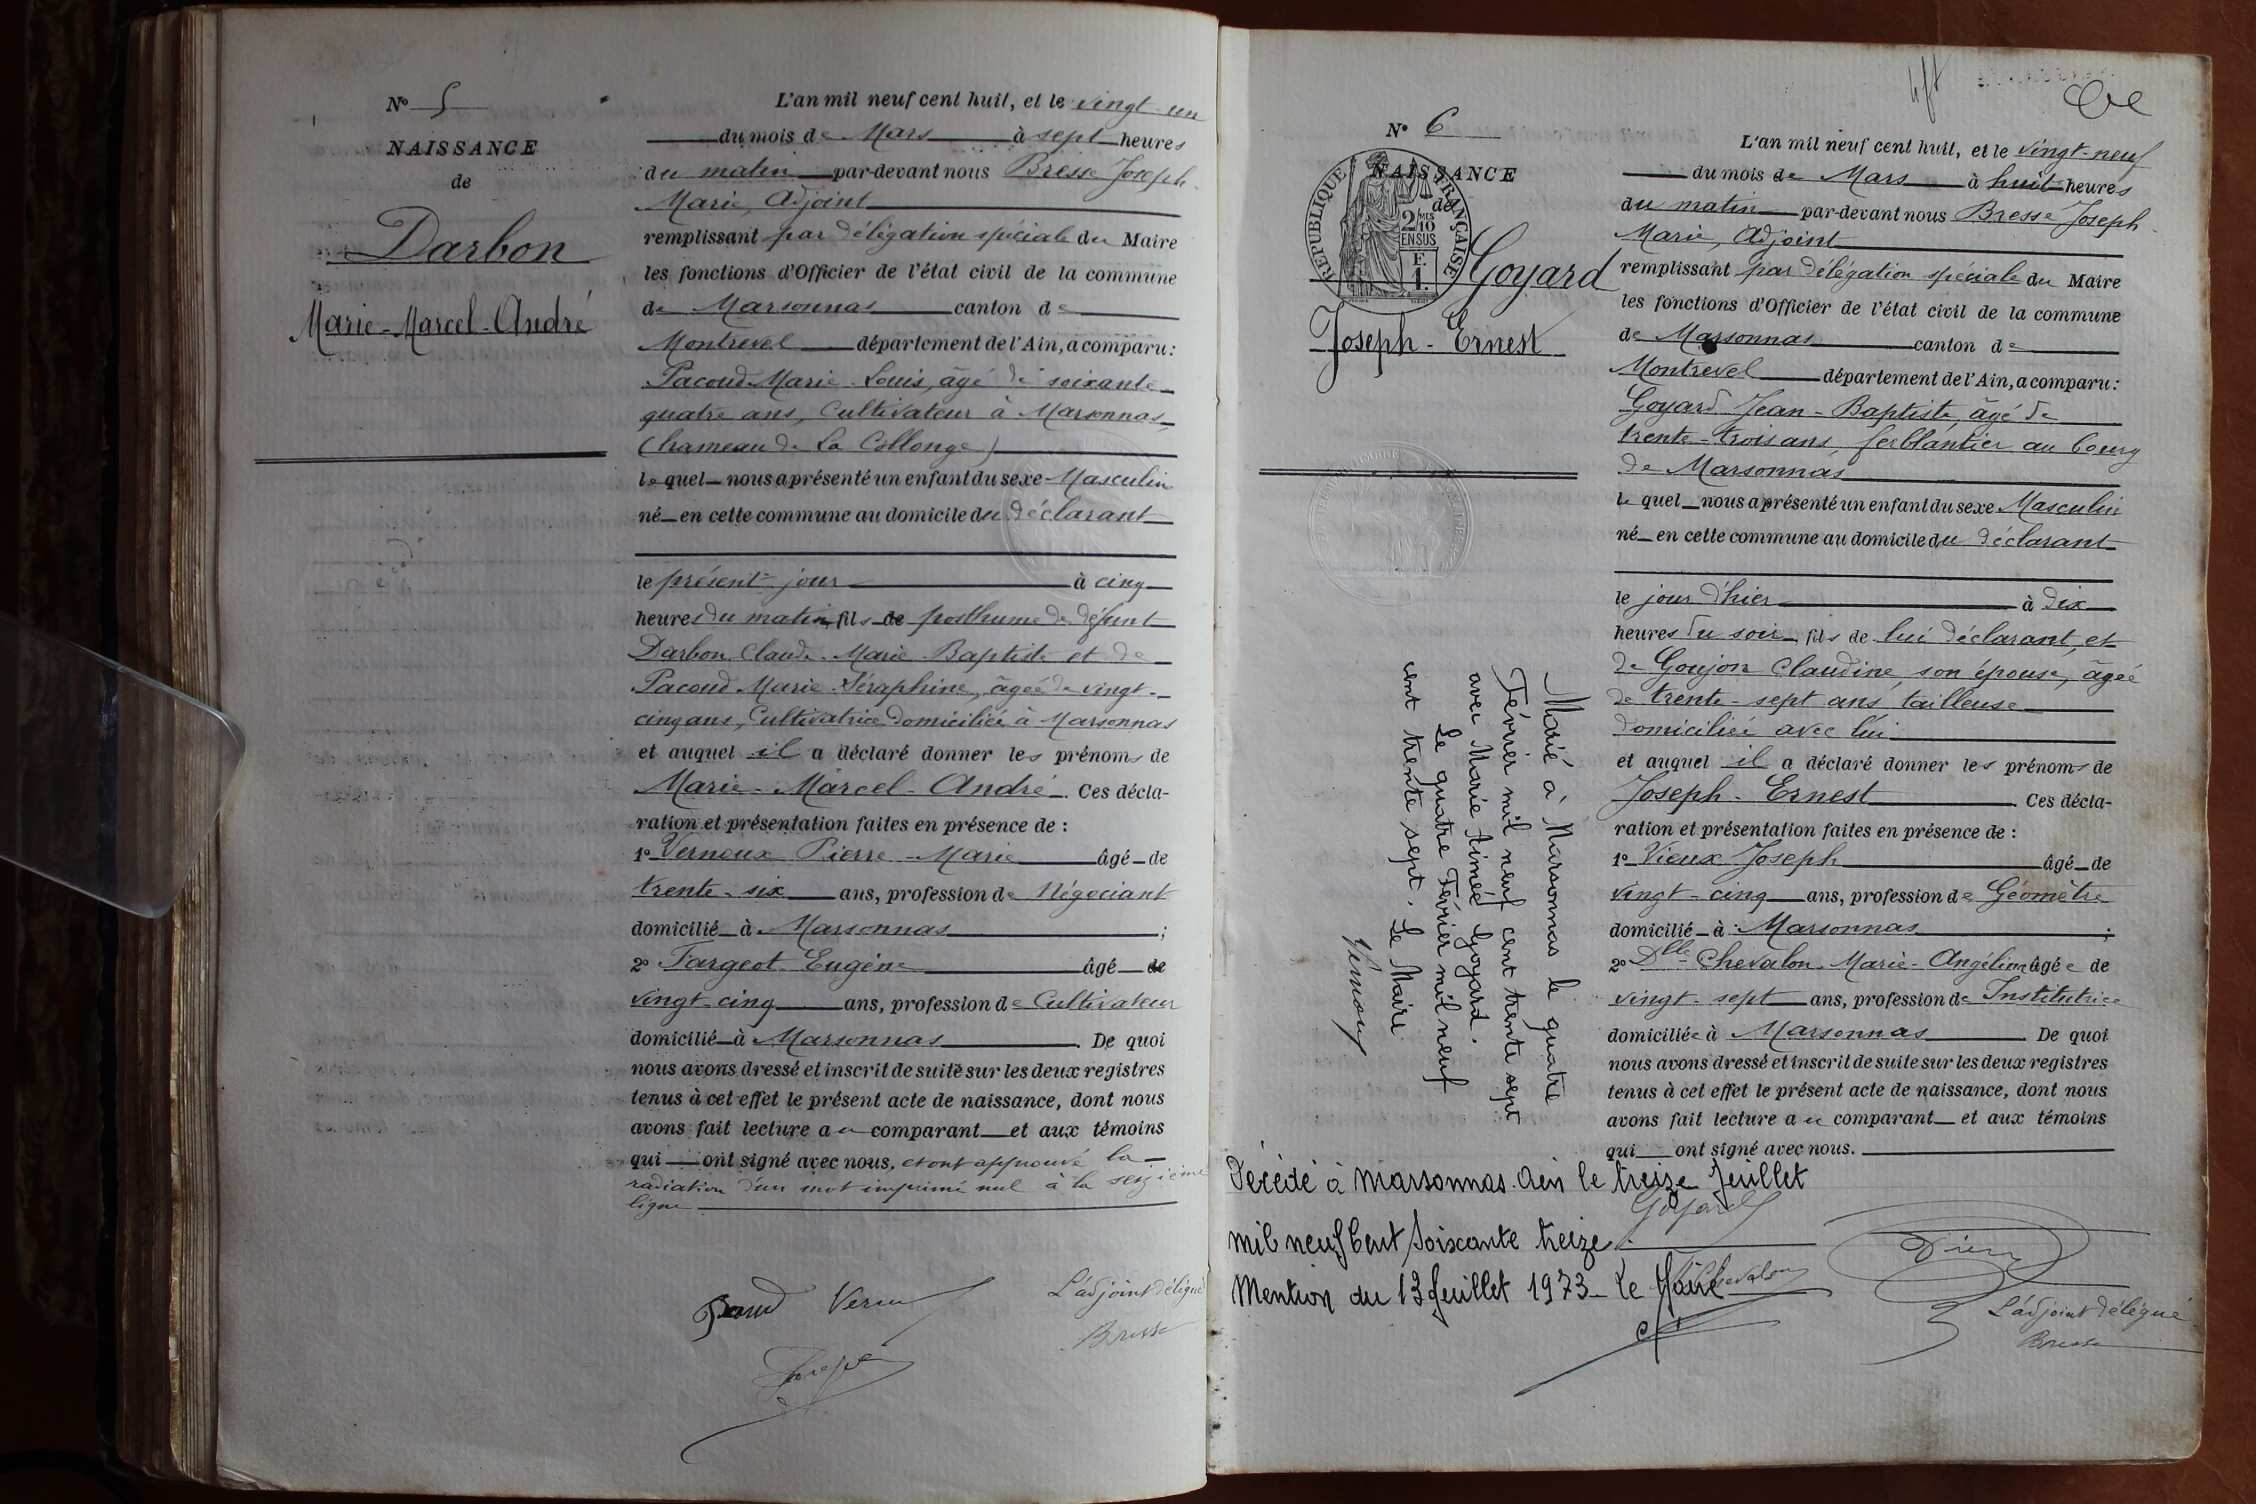 N° 5
NAISSANCE
de
Darbon
Marie-Marcel-André
L'an mil neuf cent huit, et le vingt-un
du mois de Mars à sept heures
du matin par-devant nous Bresse Joseph
Marie, Adjoint
remplissant par délégation spéciale du Maire
les fonctions d'Officier de l'état civil de la commune
de Marsonnas canton de
Montrevel département de l'Ain, a comparu :
Pacoud Marie-Louis, âgé de soixante-
quatre ans, Cultivateur à Marsonnas,
(hameau de La Collonge)
lequel nous a présenté un enfant du sexe Masculin
né en cette commune au domicile du déclarant
le présent jour à cinq
heures du matin, fils de posthume de défunt
Darbon Claude-Marie-Baptiste et de
Pacoud Marie-Séraphine, âgée de vingt-
cinq ans, Cultivatrice domiciliée à Marsonnas
et auquel il a déclaré donner les prénoms de
Marie-Marcel-André. Ces décla-
ration et présentation faites en présence de :
1° Vernoux Pierre-Marie âgé de
trente-six ans, profession de Négociant
domicilié à Marsonnas ;
2° Fargeot Eugène âgé de
vingt-cinq ans, profession de Cultivateur
domicilié à Marsonnas. De quoi
nous avons dressé et inscrit de suite sur les deux registres
tenus à cet effet le présent acte de naissance, dont nous
avons fait lecture au comparant et aux témoins
qui ont signé avec nous, et ont approuvé la
radiation d'un mot imprimé nul à la seizième
ligne
L'adjoint délégué
Bresse
N° 6
NAISSANCE
de
RÉPUBLIQUE FRANÇAISE
2/10 MES
EN SUS
F.
1.
Goyard
Joseph-Ernest
L'an mil neuf cent huit, et le vingt-neuf
du mois de Mars à huit heures
du matin par-devant nous Bresse Joseph
Marie, Adjoint
remplissant par délégation spéciale du Maire
les fonctions d'Officier de l'état civil de la commune
de Marsonnas canton de
Montrevel département de l'Ain, a comparu :
Goyard Jean-Baptiste âgé de
trente-trois ans, ferblantier au bourg
de Marsonnas
lequel nous a présenté un enfant du sexe Masculin
né en cette commune au domicile du déclarant
le jour d'hier à dix
heures du soir, fils de lui déclarant, et
de Goujon Claudine, son épouse, âgée
de trente-sept ans, tailleuse
domiciliée avec lui
et auquel il a déclaré donner les prénoms de
Joseph-Ernest. Ces décla-
ration et présentation faites en présence de :
1° Vieux Joseph âgé de
vingt-cinq ans, profession de Géomètre
domicilié à Marsonnas ;
2° Dlle Chevalon Marie-Angéline âgée de
vingt-sept ans, profession de Institutrice
domiciliée à Marsonnas. De quoi
nous avons dressé et inscrit de suite sur les deux registres
tenus à cet effet le présent acte de naissance, dont nous
avons fait lecture au comparant et aux témoins
qui ont signé avec nous.
Marié à Marsonnas le quatre
Février mil neuf cent trente sept
avec Marie Aimée Goyard.
Le quatre Février mil neuf
cent trente sept. Le Maire
Décédé à Marsonnas. Ain le treize Juillet
mil neuf Cent Soixante treize.
Mention du 13 Juillet 1973 - Le Maire
Goyard
Chevalon
L'adjoint délégué
Bresse